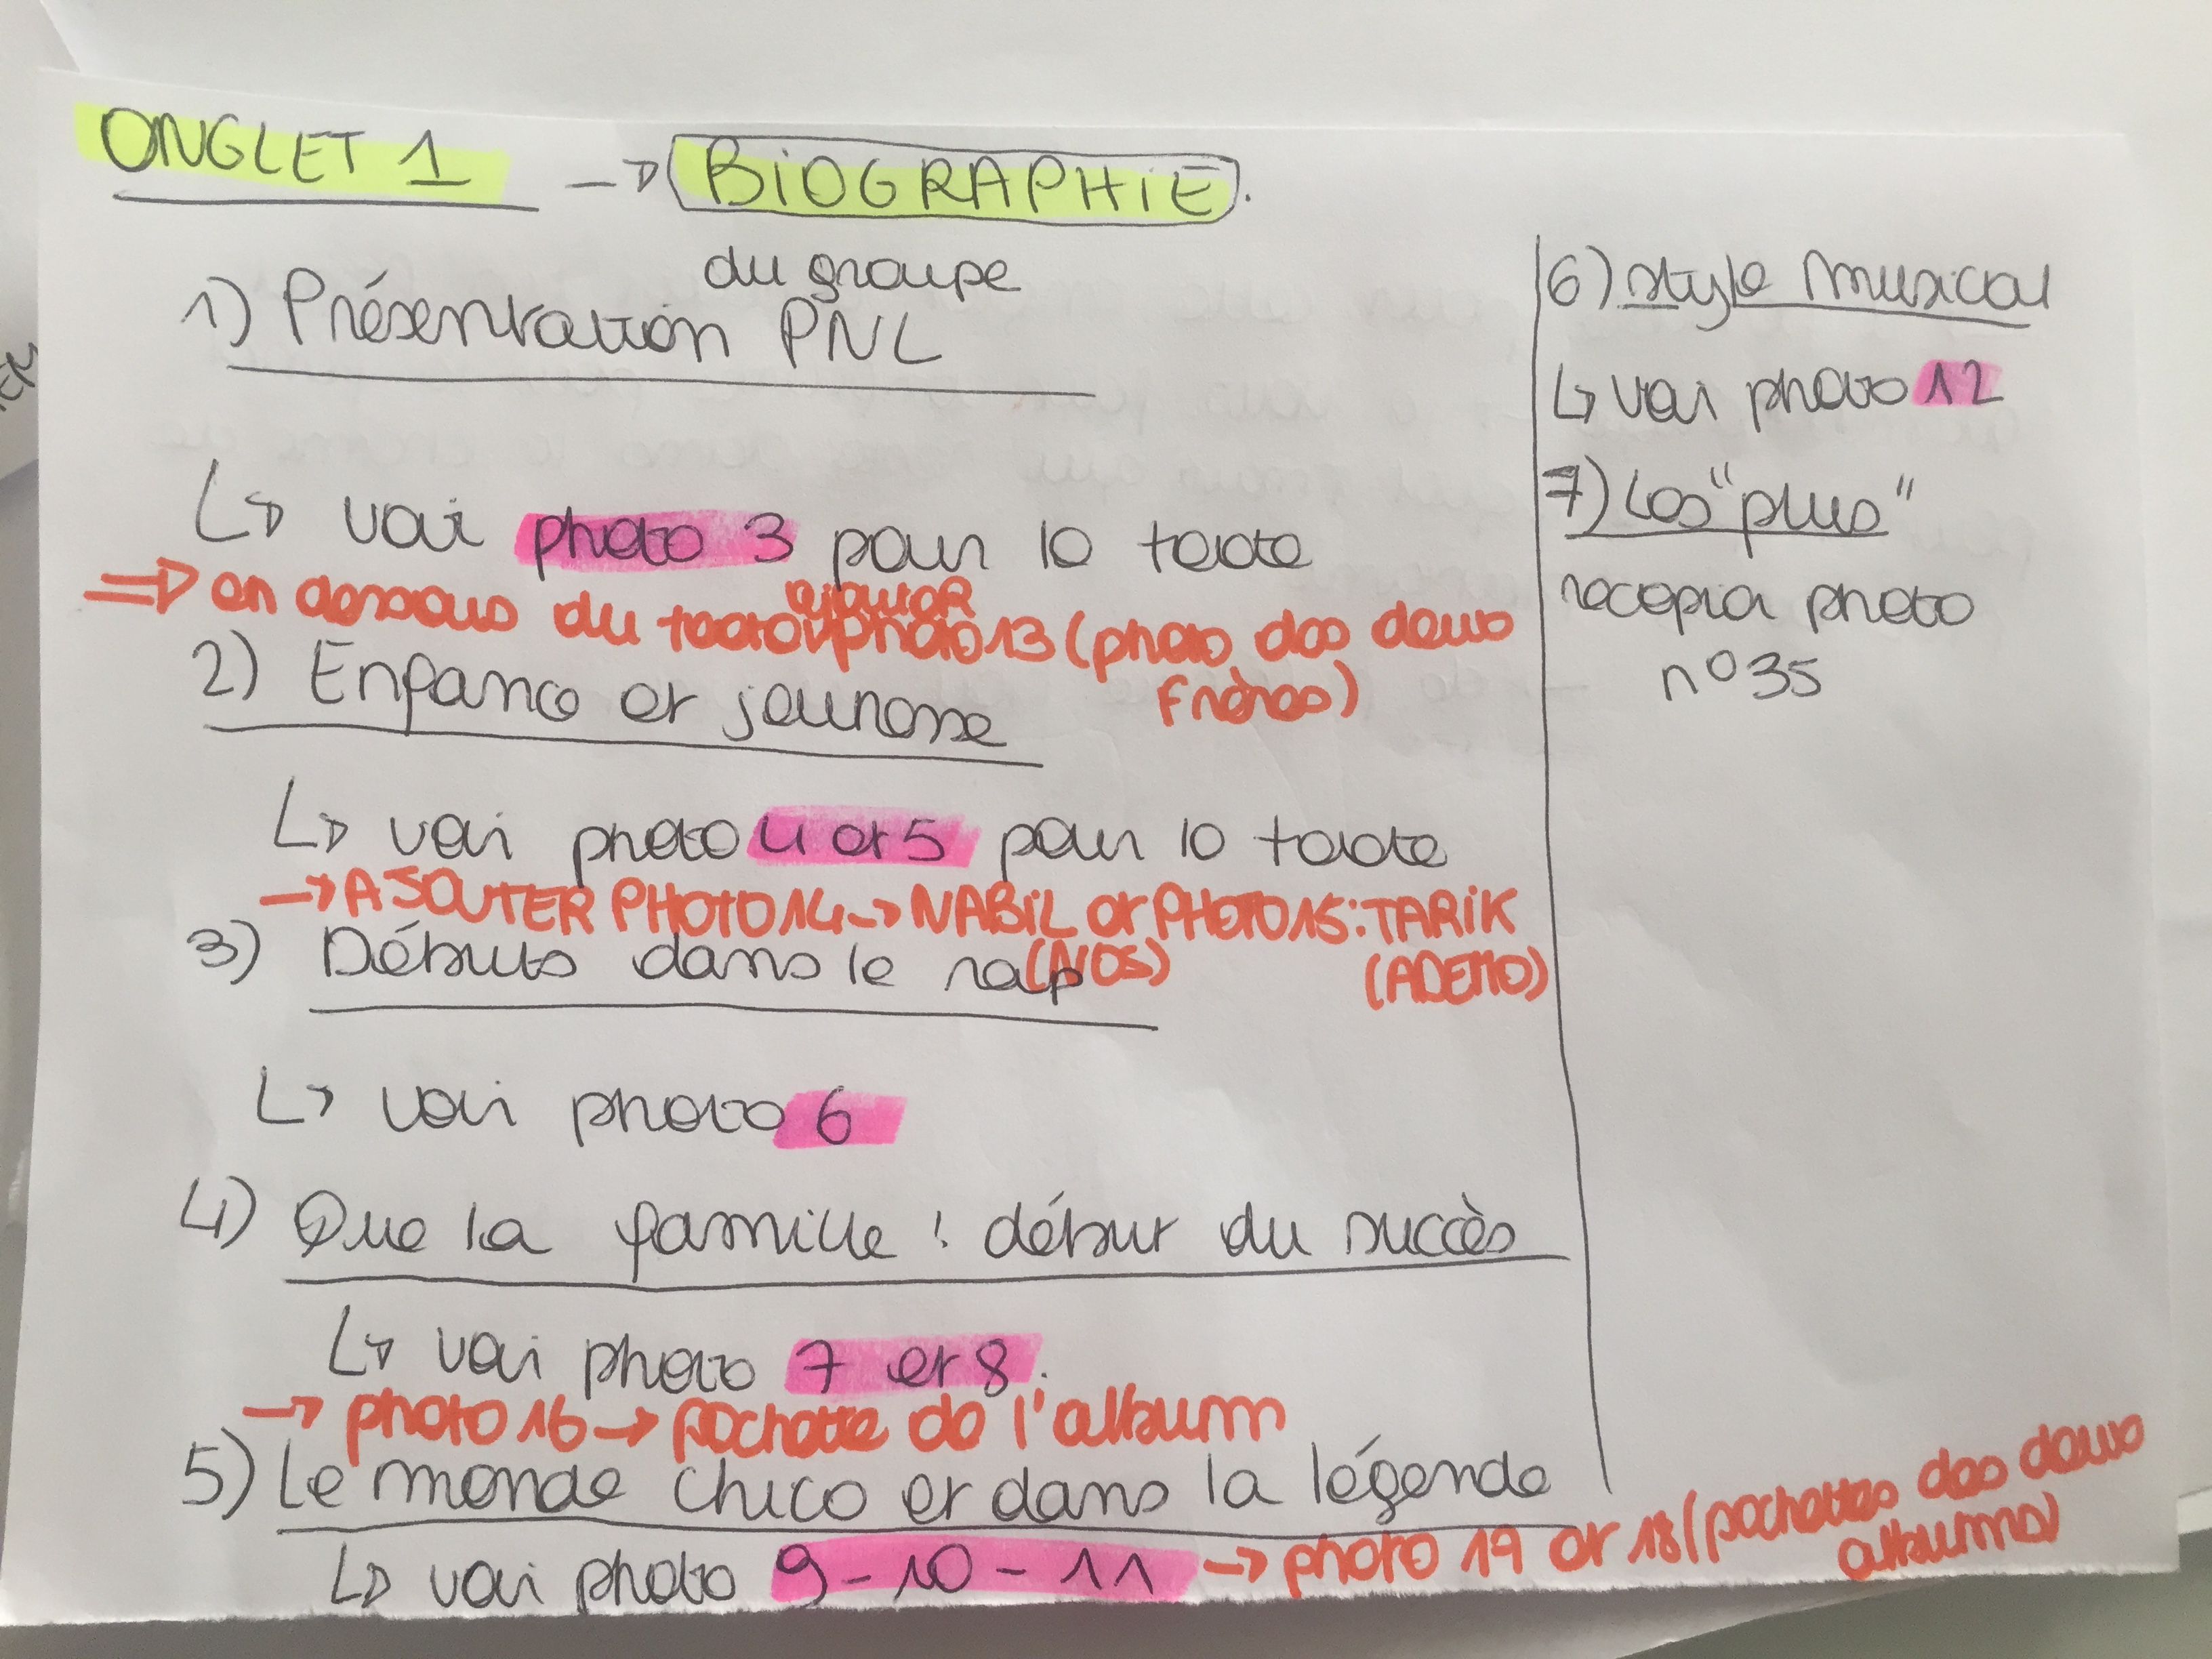 ONGLET 1 → BIOGRAPHIE.
1) Présentation du groupe PNL
↳ voir photo 3 pour le texte
⇒ en dessous du texte ajouter photo 13 (photo des deux frères)
2) Enfance et jeunesse
↳ voir photo 4 et 5 pour le texte
→ AJOUTER PHOTO 14 → NABIL (NOS) et PHOTO 15 : TARIK (ADEMO)
3) Débuts dans le rap
↳ voir photo 6
4) Que la famille : début du succès
↳ voir photo 7 et 8.
→ photo 16 → pochette de l'album
5) Le monde Chico et dans la légende
↳ voir photo 9 - 10 - 11 → photo 17 et 18 (pochettes des deux albums)
6) style musical
↳ voir photo 12
7) Les "plus"
recopier photo
n° 35